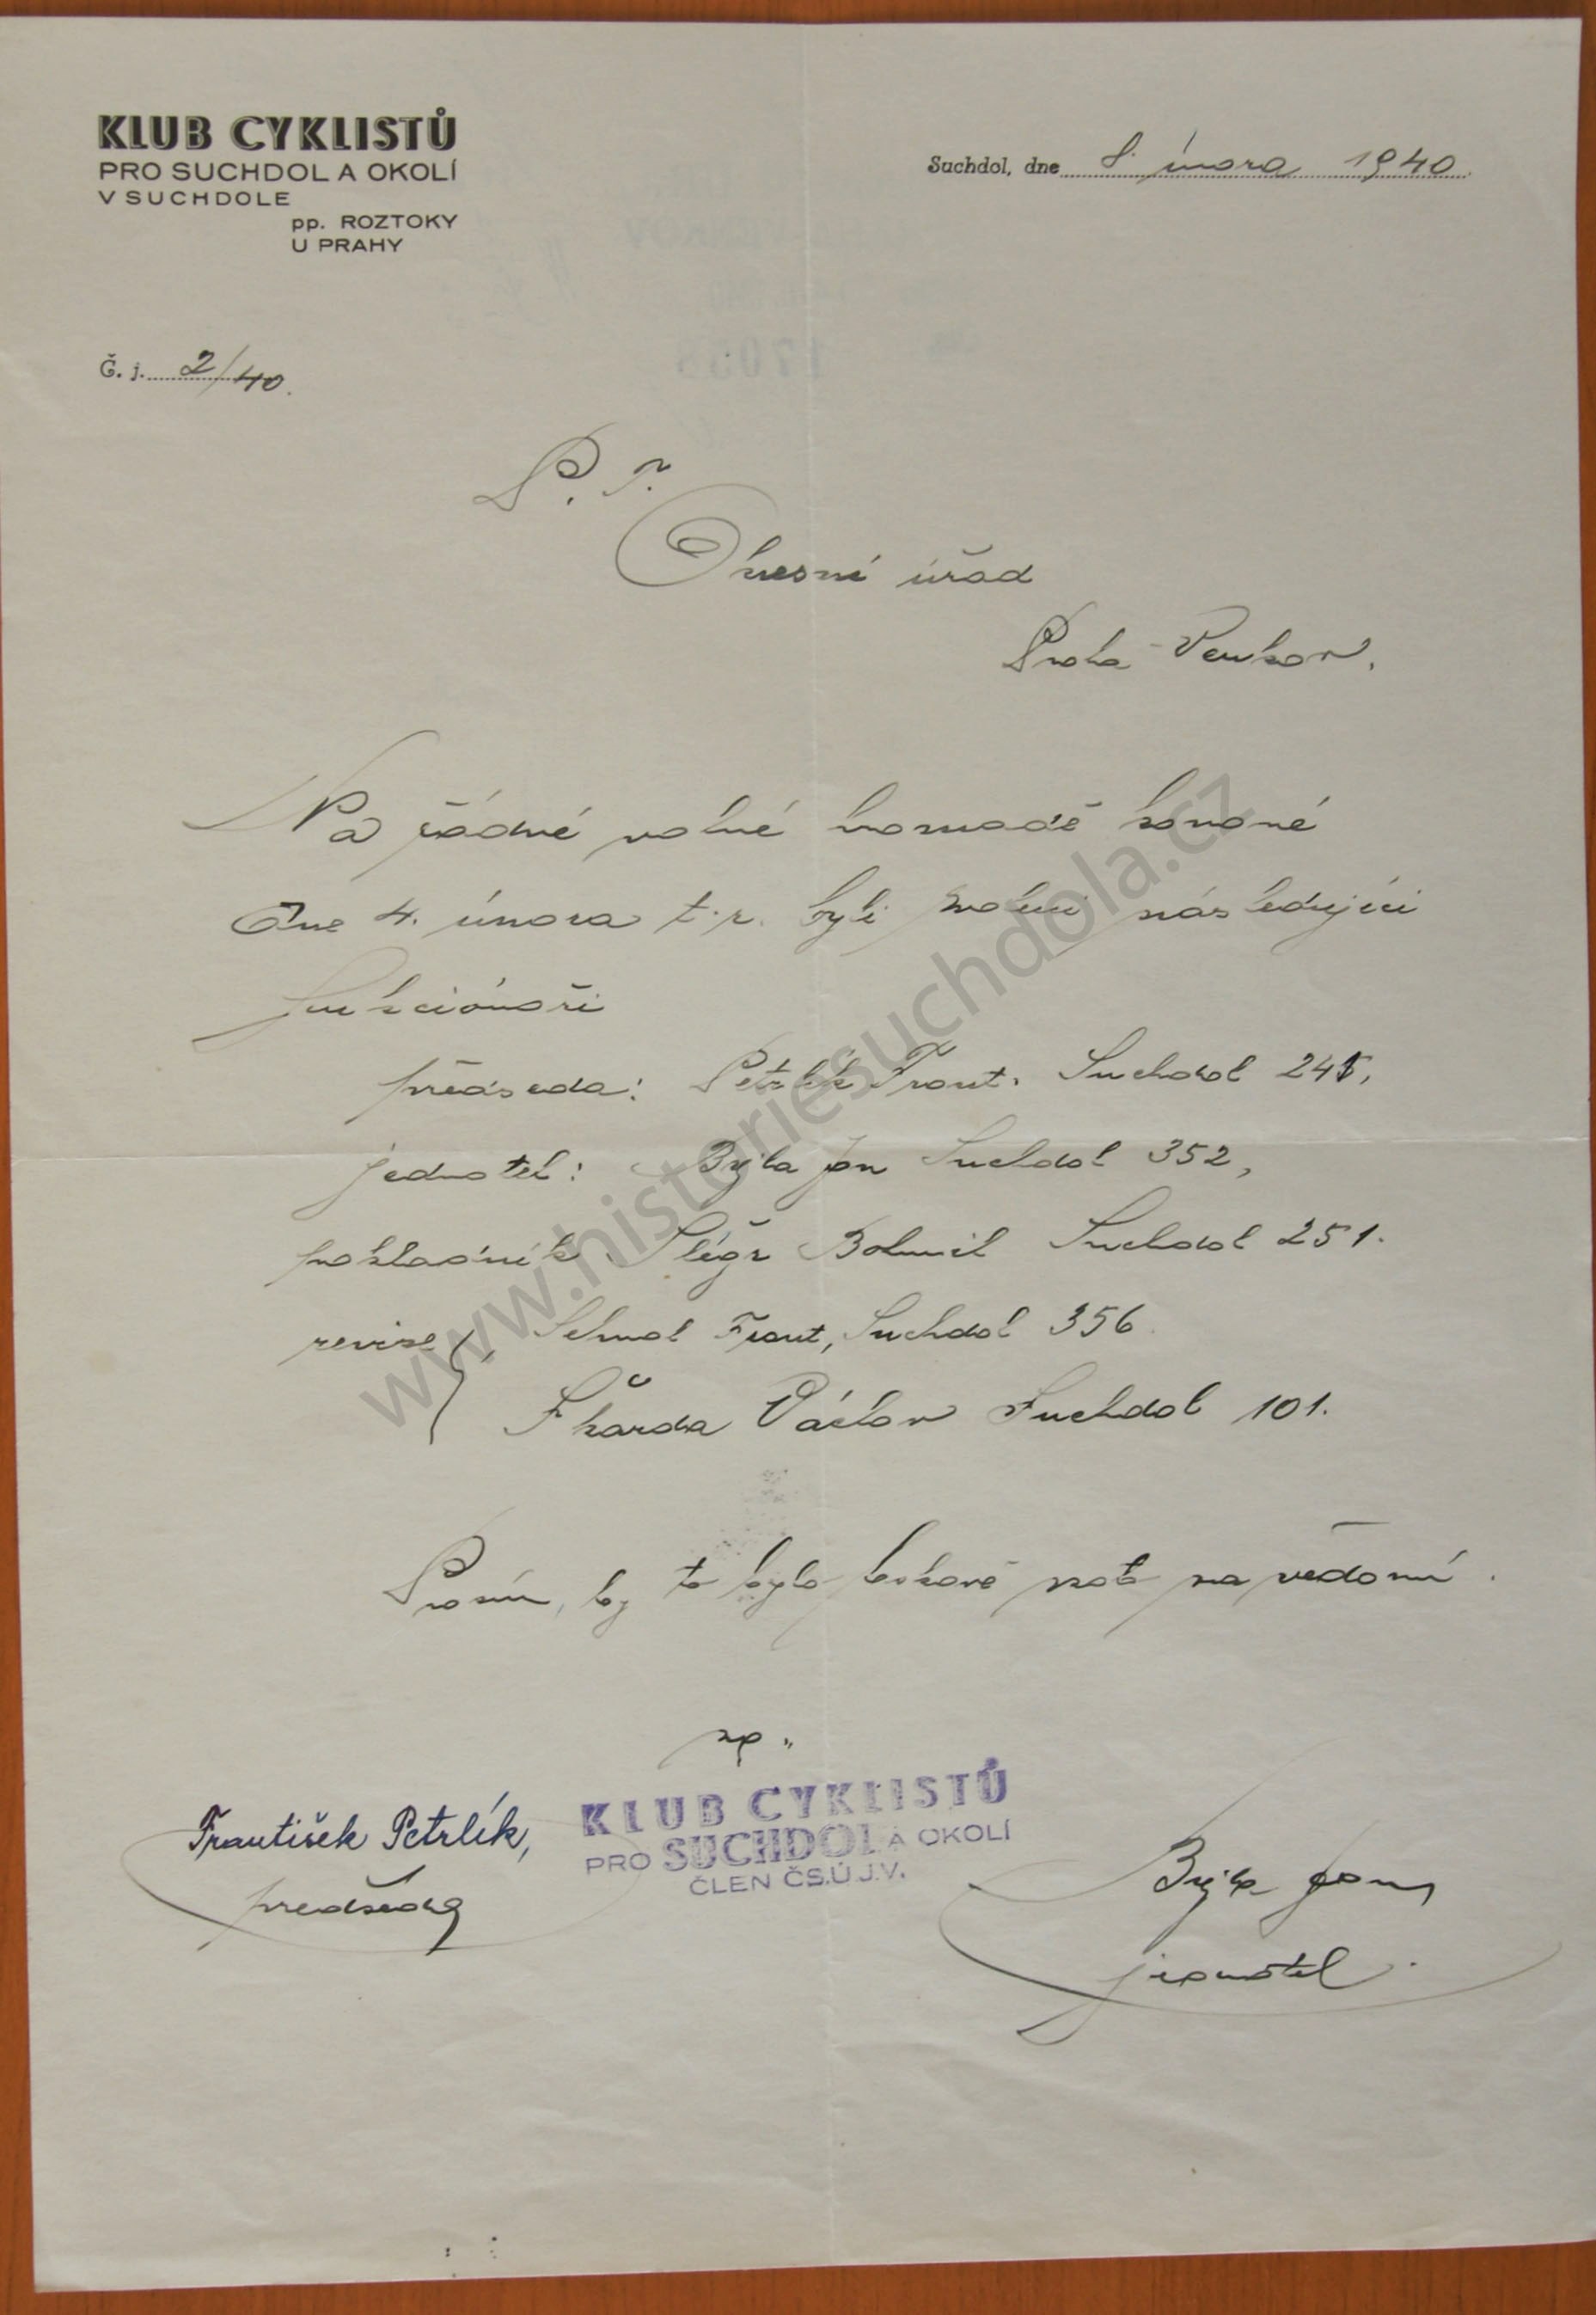 KLUB CYKLISTŮ
PRO SUCHDOL A OKOLÍ
V SUCHDOLE
pp. ROZTOKY
U PRAHY
Suchdol, dne 8. února 1940.
Č. j. 2/40.
P. T.
Okresní úřad
Praha - Venkov.
Na řádné valné hromadě konané
dne 4. února t. r. byli zvoleni následující
funkcionáři
předseda: Petrlík Frant. Suchdol 245,
jednatel: Býla Jan Suchdol 352,
pokladník Šlégr Bohumil Suchdol 251.
revise Frant, Suchdol 356.
Škarda Václav Suchdol 101.
Prosím, by to bylo laskavě vzato na vědomí.
zp.
KLUB CYKLISTŮ
PRO SUCHDOL A OKOLÍ
ČLEN ČS.Ú.J.V.
František Petrlík,
předseda
Býla Jan
jednatel.
www.historiesuchdola.cz